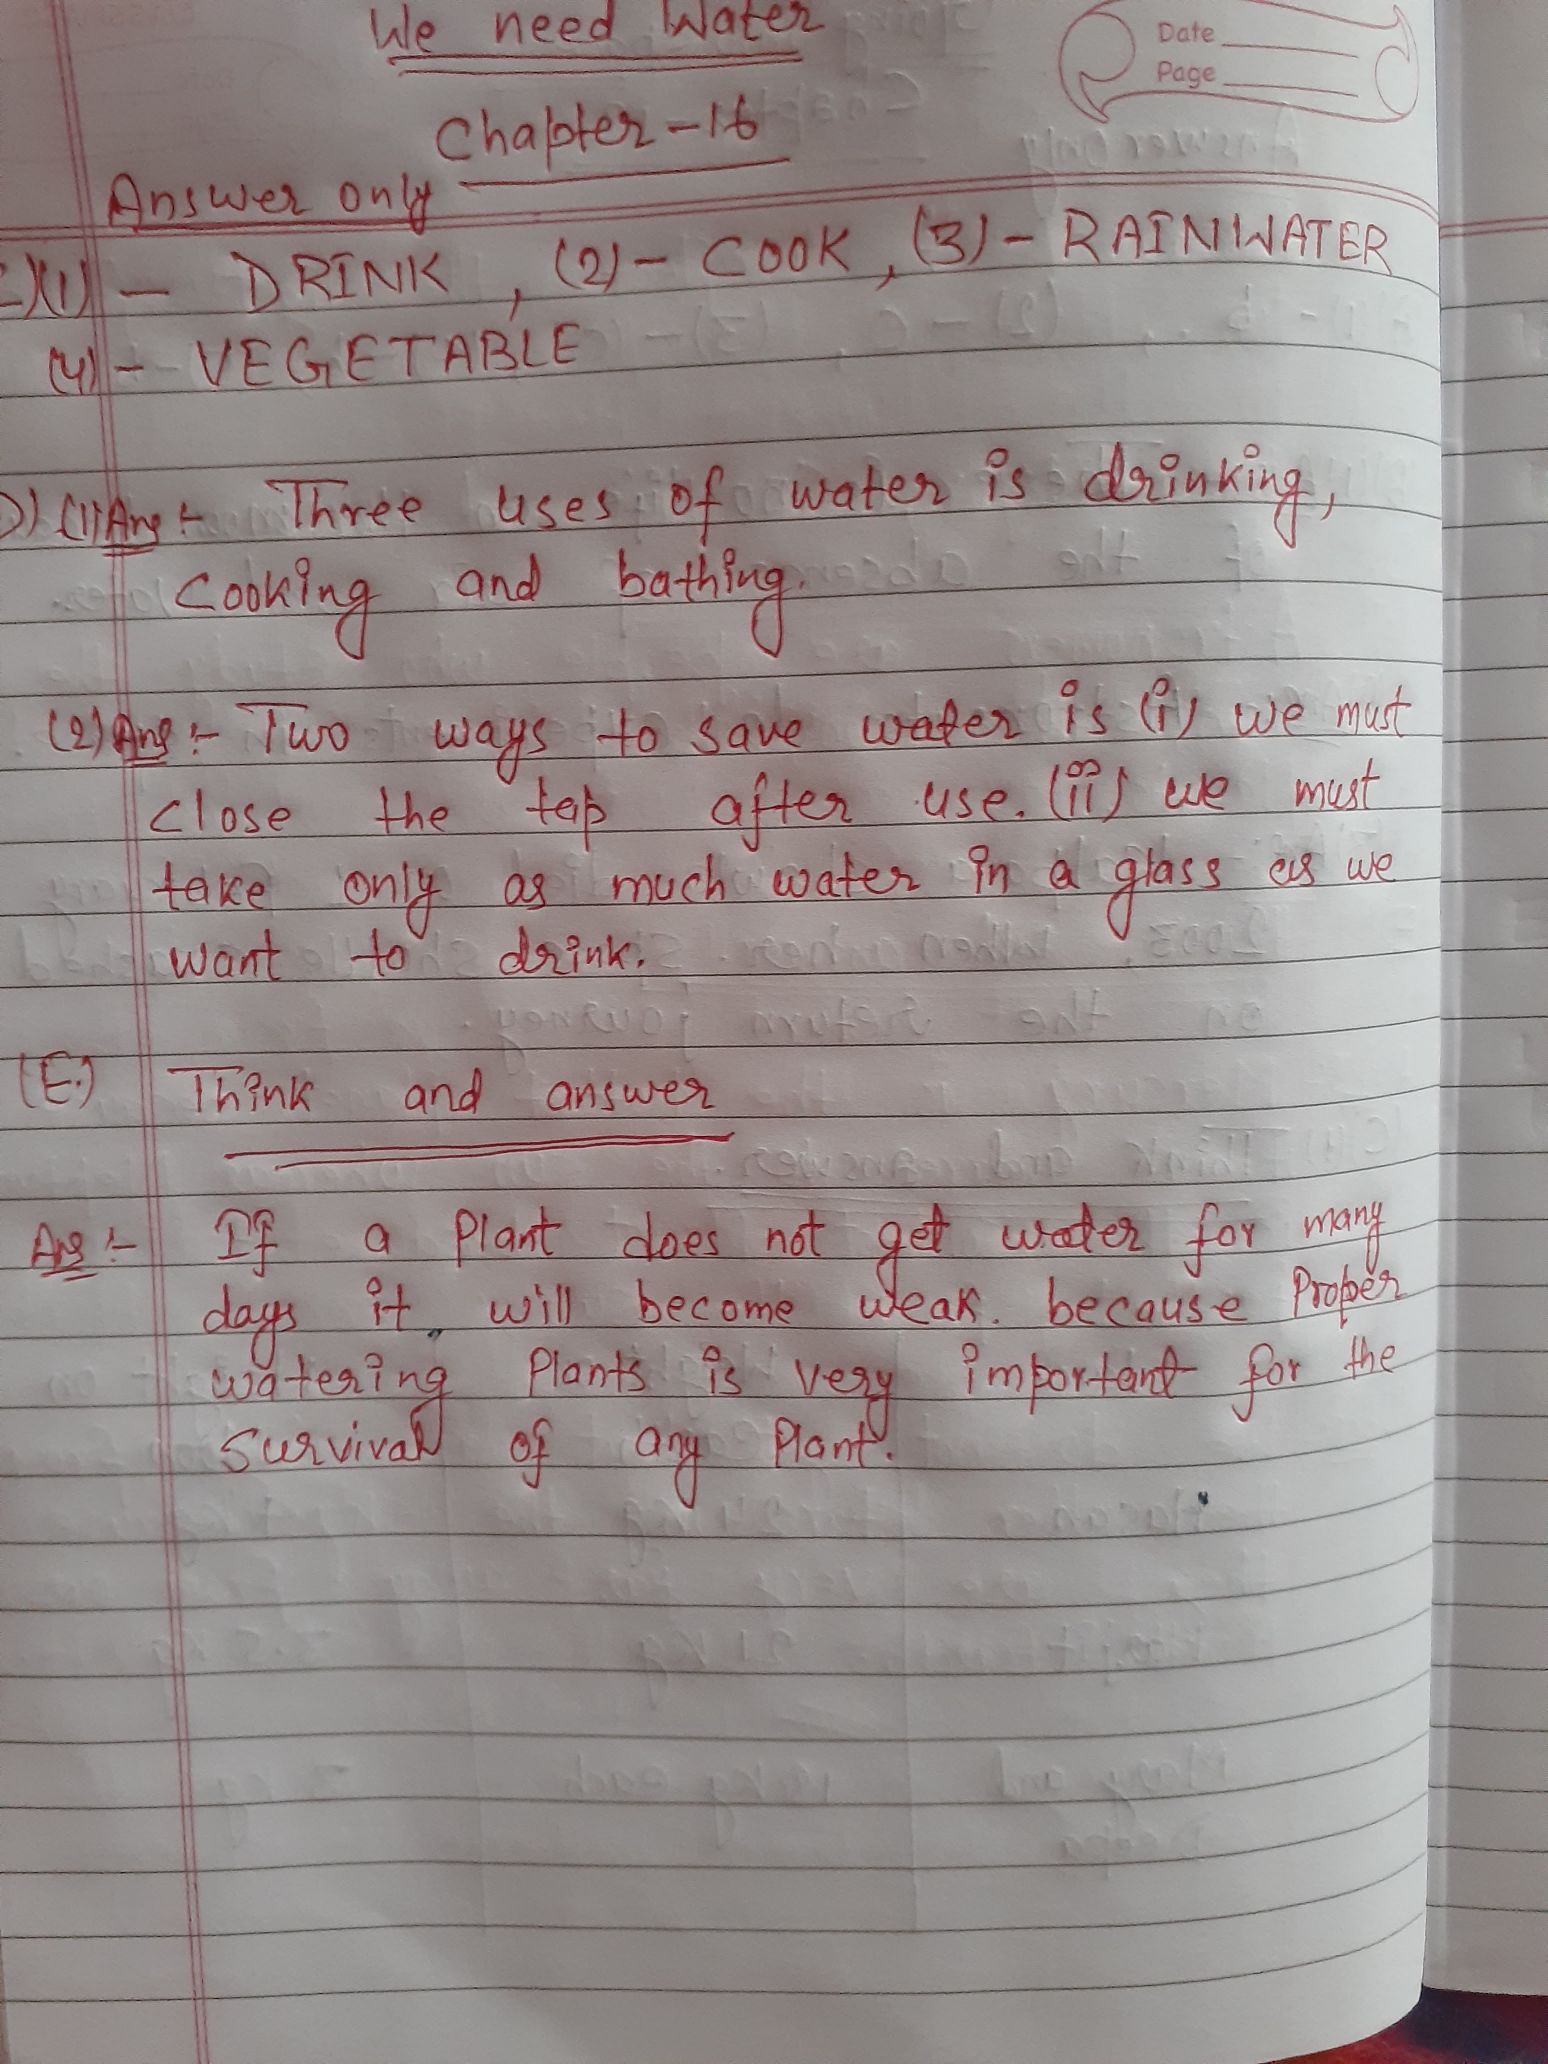 We need Water
Date
Page
Chapter-16
Answer only
C)(1) - DRINK, (2)- COOK, (3)- RAINWATER
(4) - VEGETABLE
D) (1) Ans :- Three uses of water is drinking,
cooking and bathing.
(2) Ans :- Two ways to save water is (i) we must
close the tap after use. (ii) we must
take only as much water in a glass as we
want to drink.
(E.) Think and answer
Ans :- If a Plant does not get water for many
days it will become weak. because Proper
watering Plants is very important for the
survival of any Plant.